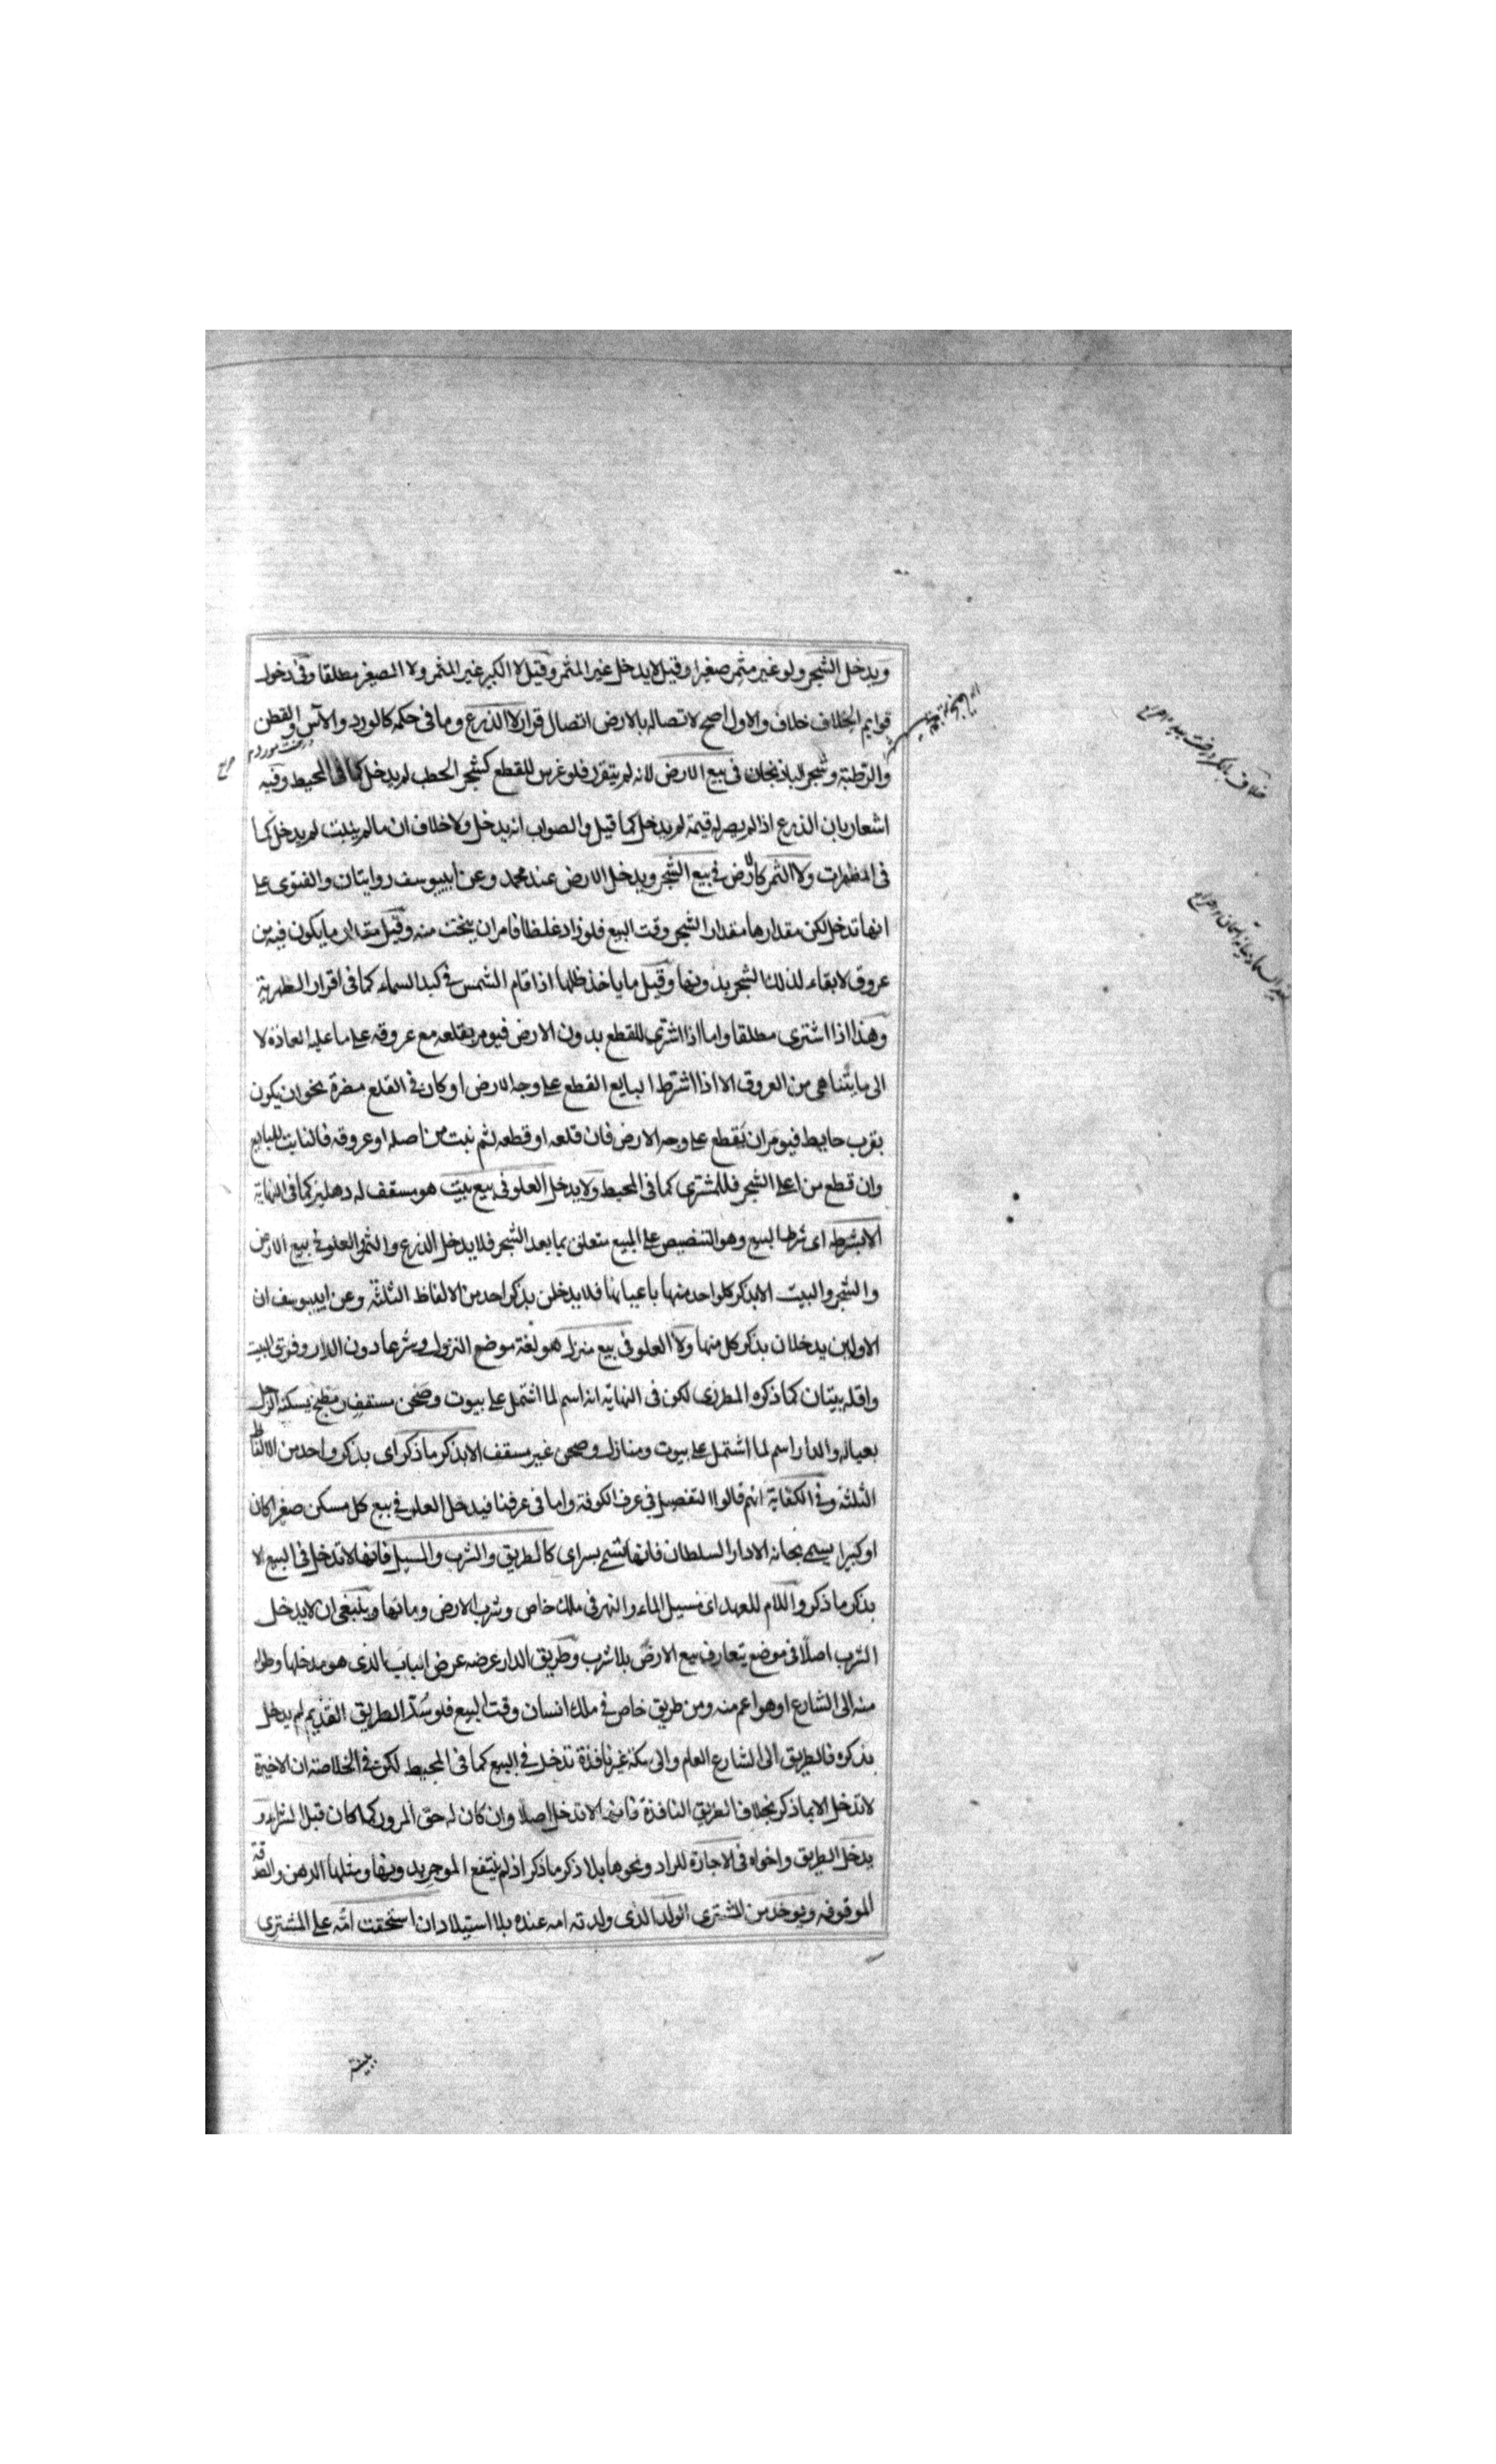 ويدخل الشجر ولو غير مثمر صغيرا وقيل لا يدخل غير المثمر وقيل لا الكبير غير المثمر ولا الصغير مطلقا وفى دخول
قوايم الخلاف خلاف والاول اصح لاتصاله بالارض اتصال قرار لا الذرع وما فى حكمه كالورد والآس والقطن
والرطبة وشجر الباذنجان فى بيع الارض لانه لم يتقرر فلو غرس للقطع كشجر الحطب لم يدخل كما فى المحيط وفيه
اشعار بان الذرع اذا لم يصر له قيمة لم يدخل كما قيل والصواب انه يدخل ولا خلاف ان ما لم ينبت لم يدخل كما
فى المضمرات ولا الثمر كالارض فى بيع الشجر ويدخل الارض عند محمد وعن ابييوسف روايتان والفتوى على
انها تدخل لكن مقدارها مقدار الشجر وقت البيع فلو زاد غلظا فامر ان ينحت منه وقيل مقدار ما يكون فيه من
عروق لا بقاء لذلك الشجر بدونها وقيل ما ياخذ ظلها اذا قام الشمس فى كبد السماء كما فى اقرار الظهيرية
وهذا اذا اشترى مطلقا واما اذا اشترى للقطع بدون الارض فيومر بقلعه مع عروقه على ما عليه العادة لا
الى ما يتناهى من العروق الا اذا اشترط البايع القطع على وجه الارض او كان فى القلع مضرة نحو ان يكون
بقرب حايط فيومر ان يقطع على وجه الارض فان قلعه او قطعه ثم نبت من اصله او عروقه فالنابت للبايع
وان قطع من اعلى الشجر فللمشترى كما فى المحيط ولا يدخل العلو فى بيع بيت هو مسقف له دهليز كما فى النهاية
الا بشرطه اى شرط البيع وهو التنصيص على المبيع متعلق بما بعد الشجر فلا يدخل الذرع والثمر والعلو فى بيع الارض
والشجر والبيت الا بذكر كل واحد منها باعيانها فلا يدخلن بذكر احد من الالفاظ الثلثة وعن ابييوسف ان
الاولين يدخلان بذكر كل منها ولا العلو فى بيع منزل هو لغة موضع النزول وشرعا دون الدار وفوق البيت
واقله بيتان كما ذكره المطرزى لكن فى النهاية انه اسم لما اشتمل على بيوت وصحن مسقف ومطبخ يسكنه الرجل
بعياله والدار اسم لما اشتمل على بيوت ومنازل وصحن غير مسقف الا بذكر ما ذكر اى بذكر واحد من الالفاظ
الثلثة وفى الكفاية انهم قالوا التفصيل فى عرف الكوفة واما فى عرفنا فيدخل العلو فى بيع كل مسكن صغيرا كان
او كبيرا يسمى بخانه الا دار السلطان فانها تسمى بسراى كالطريق والشرب والمسيل فانها لا تدخل فى البيع الا
بذكر ما ذكر واللام للعهد اى مسيل الماء والنهر فى ملك خاص وشرب الارض ومائها وينبغى ان لا يدخل
الشرب اصلا فى موضع يتعارف بيع الارض بلا شرب وطريق الدار عرضه عرض الباب الذى هو مدخلها وطوله
منه الى الشارع او هو اعم منه ومن طريق خاص فى ملك انسان وقت البيع فلو سد الطريق القديم لم يدخل
بذكره فالطريق الى الشارع العام والى سكة غير نافذة تدخل فى البيع كما فى المحيط لكن فى الخلاصة ان الاخيرة
لا تدخل الا بما ذكر بخلاف الطريق النافذة فانها لا تدخل اصلا وان كان له حق المرور كما كان قبل الشراء و
يدخل الطريق واخواه فى الاجارة للدار ونحوها بلا ذكر ما ذكر اذ لم ينتفع الموجر بدونها ومثلها الرهن والصدقة
الموقوفه ويوخذ من المشترى الولد الذى ولدته امه عنده بلا استيلاد ان استحقت امه على المشترى